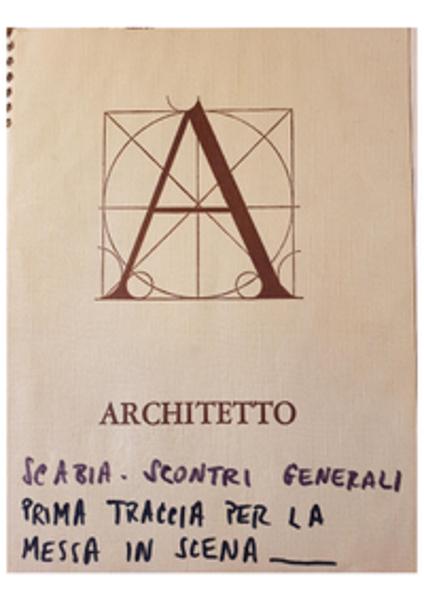 A
ARCHITETTO
SCABIA - SCONTRI GENERALI
PRIMA TRACCIA PER LA
MESSA IN SCENA